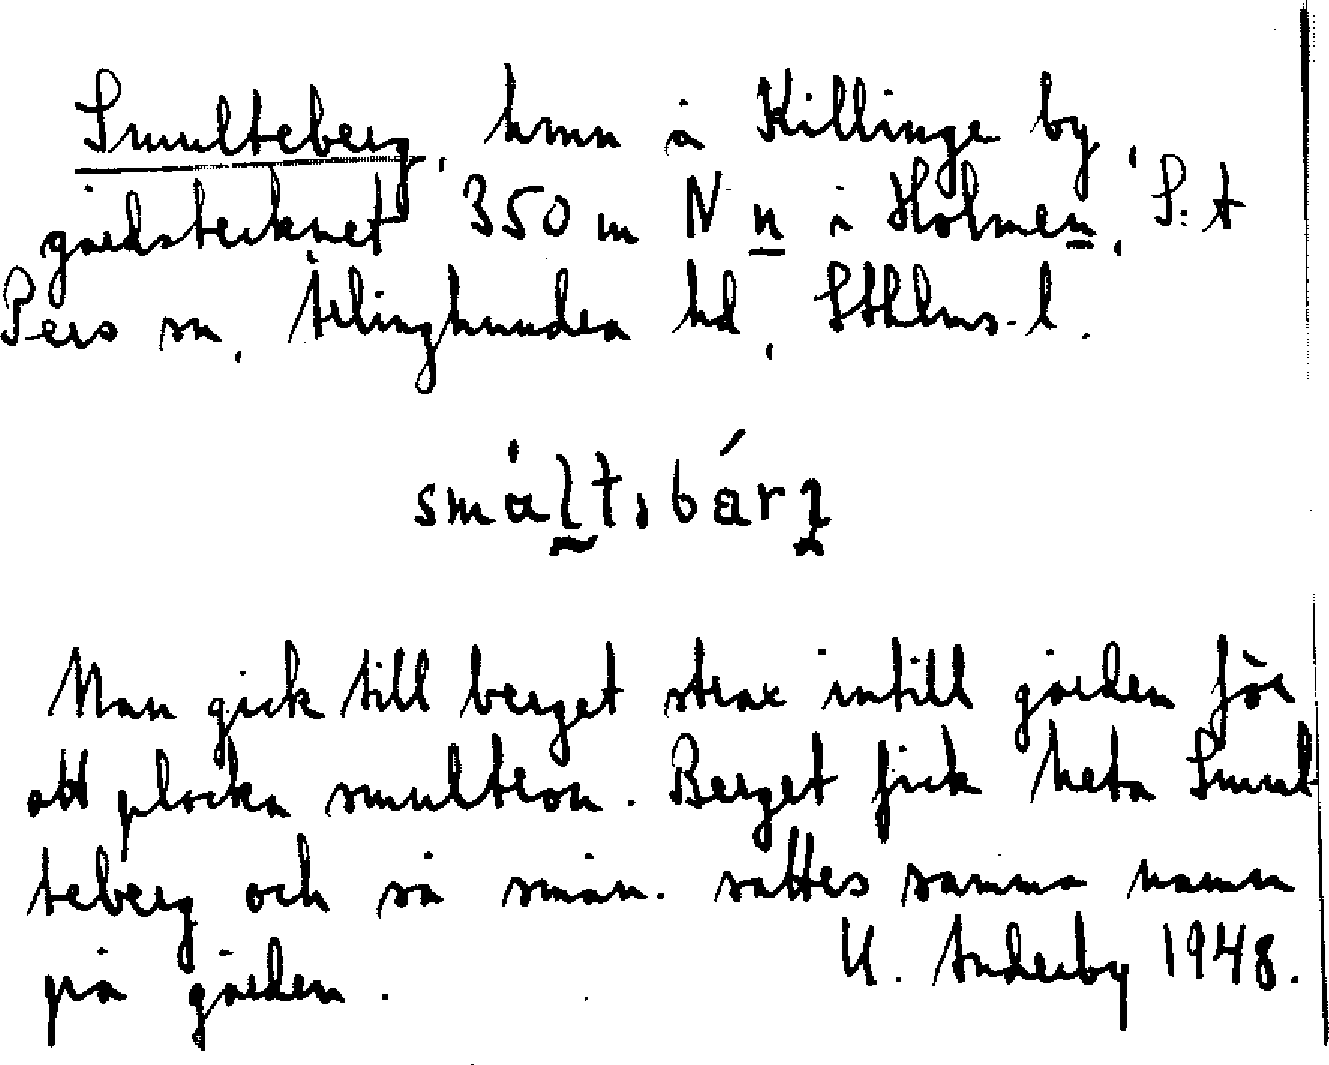 Smulteberg, hmn å Killinge by,
gårdstecknet 350 m N n i Holmen, S:t
Pers sn, Ärlinghundra hd, Sthlms. l.
små̇lt₁bárʒ
Man gick till berget strax intill gården för
att plocka smultron. Berget fick heta Smul
teberg och så smån. sattes samma namn
på gården.
U. Anderby 1948.